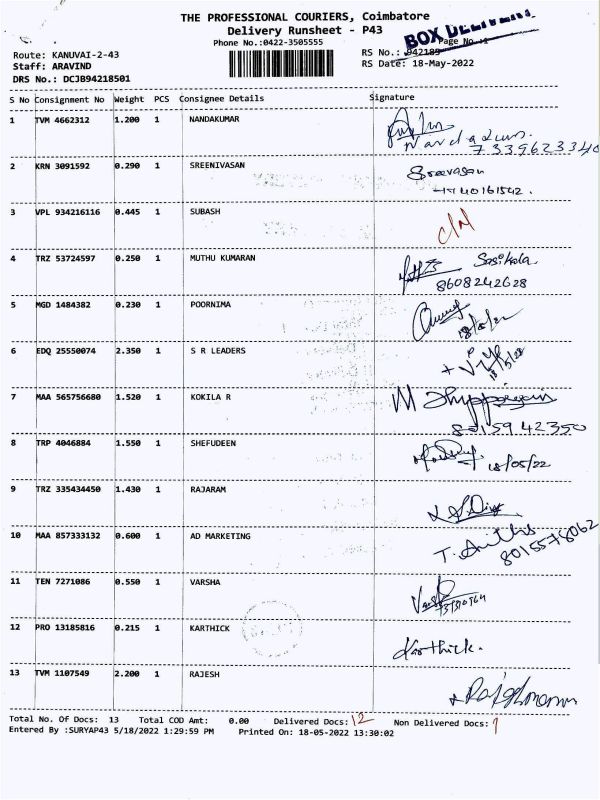 THE PROFESSIONAL COURIERS, Coimbatore
Delivery Runsheet - P43
BOX DELIVERY
Phone No.:0422-3505555
Page No.:1
Route: KANUVAI-2-43
RS No.: 942185
Staff: ARAVIND
RS Date: 18-May-2022
DRS No.: DCJB94218501
S No Consignment No Weight PCS Consignee Details Signature
1 TVM 4662312 1.200 1 NANDAKUMAR
Nandakum.
7339623340
2 KRN 3091592 0.290 1 SREENIVASAN
Sreevasan
3 VPL 934216116 0.445 1 SUBASH
C/N
4 TRZ 53724597 0.250 1 MUTHU KUMARAN
Sasikala
8608242628
5 MGD 1484382 0.230 1 POORNIMA
18/5/22
6 EDQ 25550074 2.350 1 S R LEADERS
18/5/22
7 MAA 565756680 1.520 1 KOKILA R
8 TRP 4046884 1.550 1 SHEFUDEEN
18/05/22
9 TRZ 335434450 1.430 1 RAJARAM
10 MAA 857333132 0.600 1 AD MARKETING
T. Anitha
8015578062
11 TEN 7271086 0.550 1 VARSHA
12 PRO 13185816 0.215 1 KARTHICK
Karthick.
13 TVM 1107549 2.200 1 RAJESH
Total No. Of Docs: 13 Total COD Amt: 0.00 Delivered Docs: 12 Non Delivered Docs: 1
Entered By :SURYAP43 5/18/2022 1:29:59 PM Printed On: 18-05-2022 13:30:02